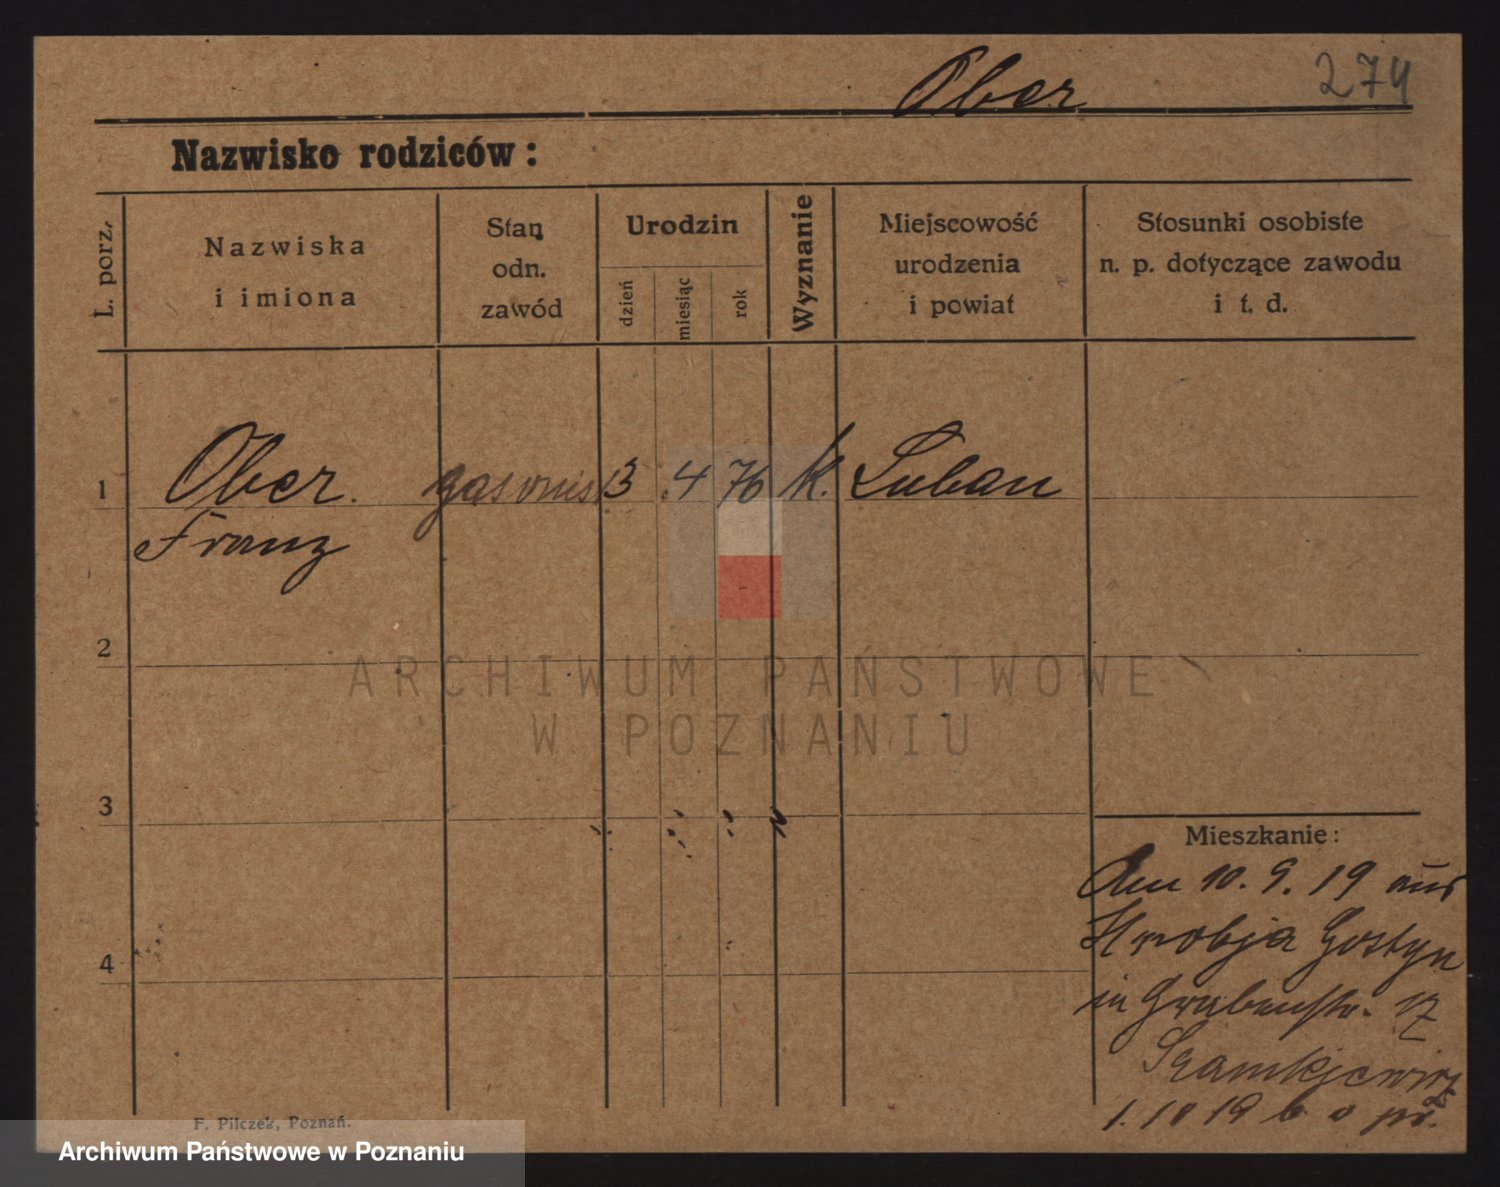 Ober 274
Nazwisko rodziców:
L. porz.
Nazwiska
i imiona
Stan
odn.
zawód
Urodzin
dzień
miesiąc
rok
Wyznanie
Miejscowość
urodzenia
i powiat
Stosunki osobiste
n. p. dotyczące zawodu
i t. d.
1 Ober. 3 4 76 k. Luban
Franz
2
ARCHIWUM PAŃSTWOWE
W POZNANIU
3
Mieszkanie:
Am 10. 9. 19 aus
Gostyn
4
in Grabenstr. 17
1. 10 19
F. Pilczek, Poznań.
Archiwum Państwowe w Poznaniu